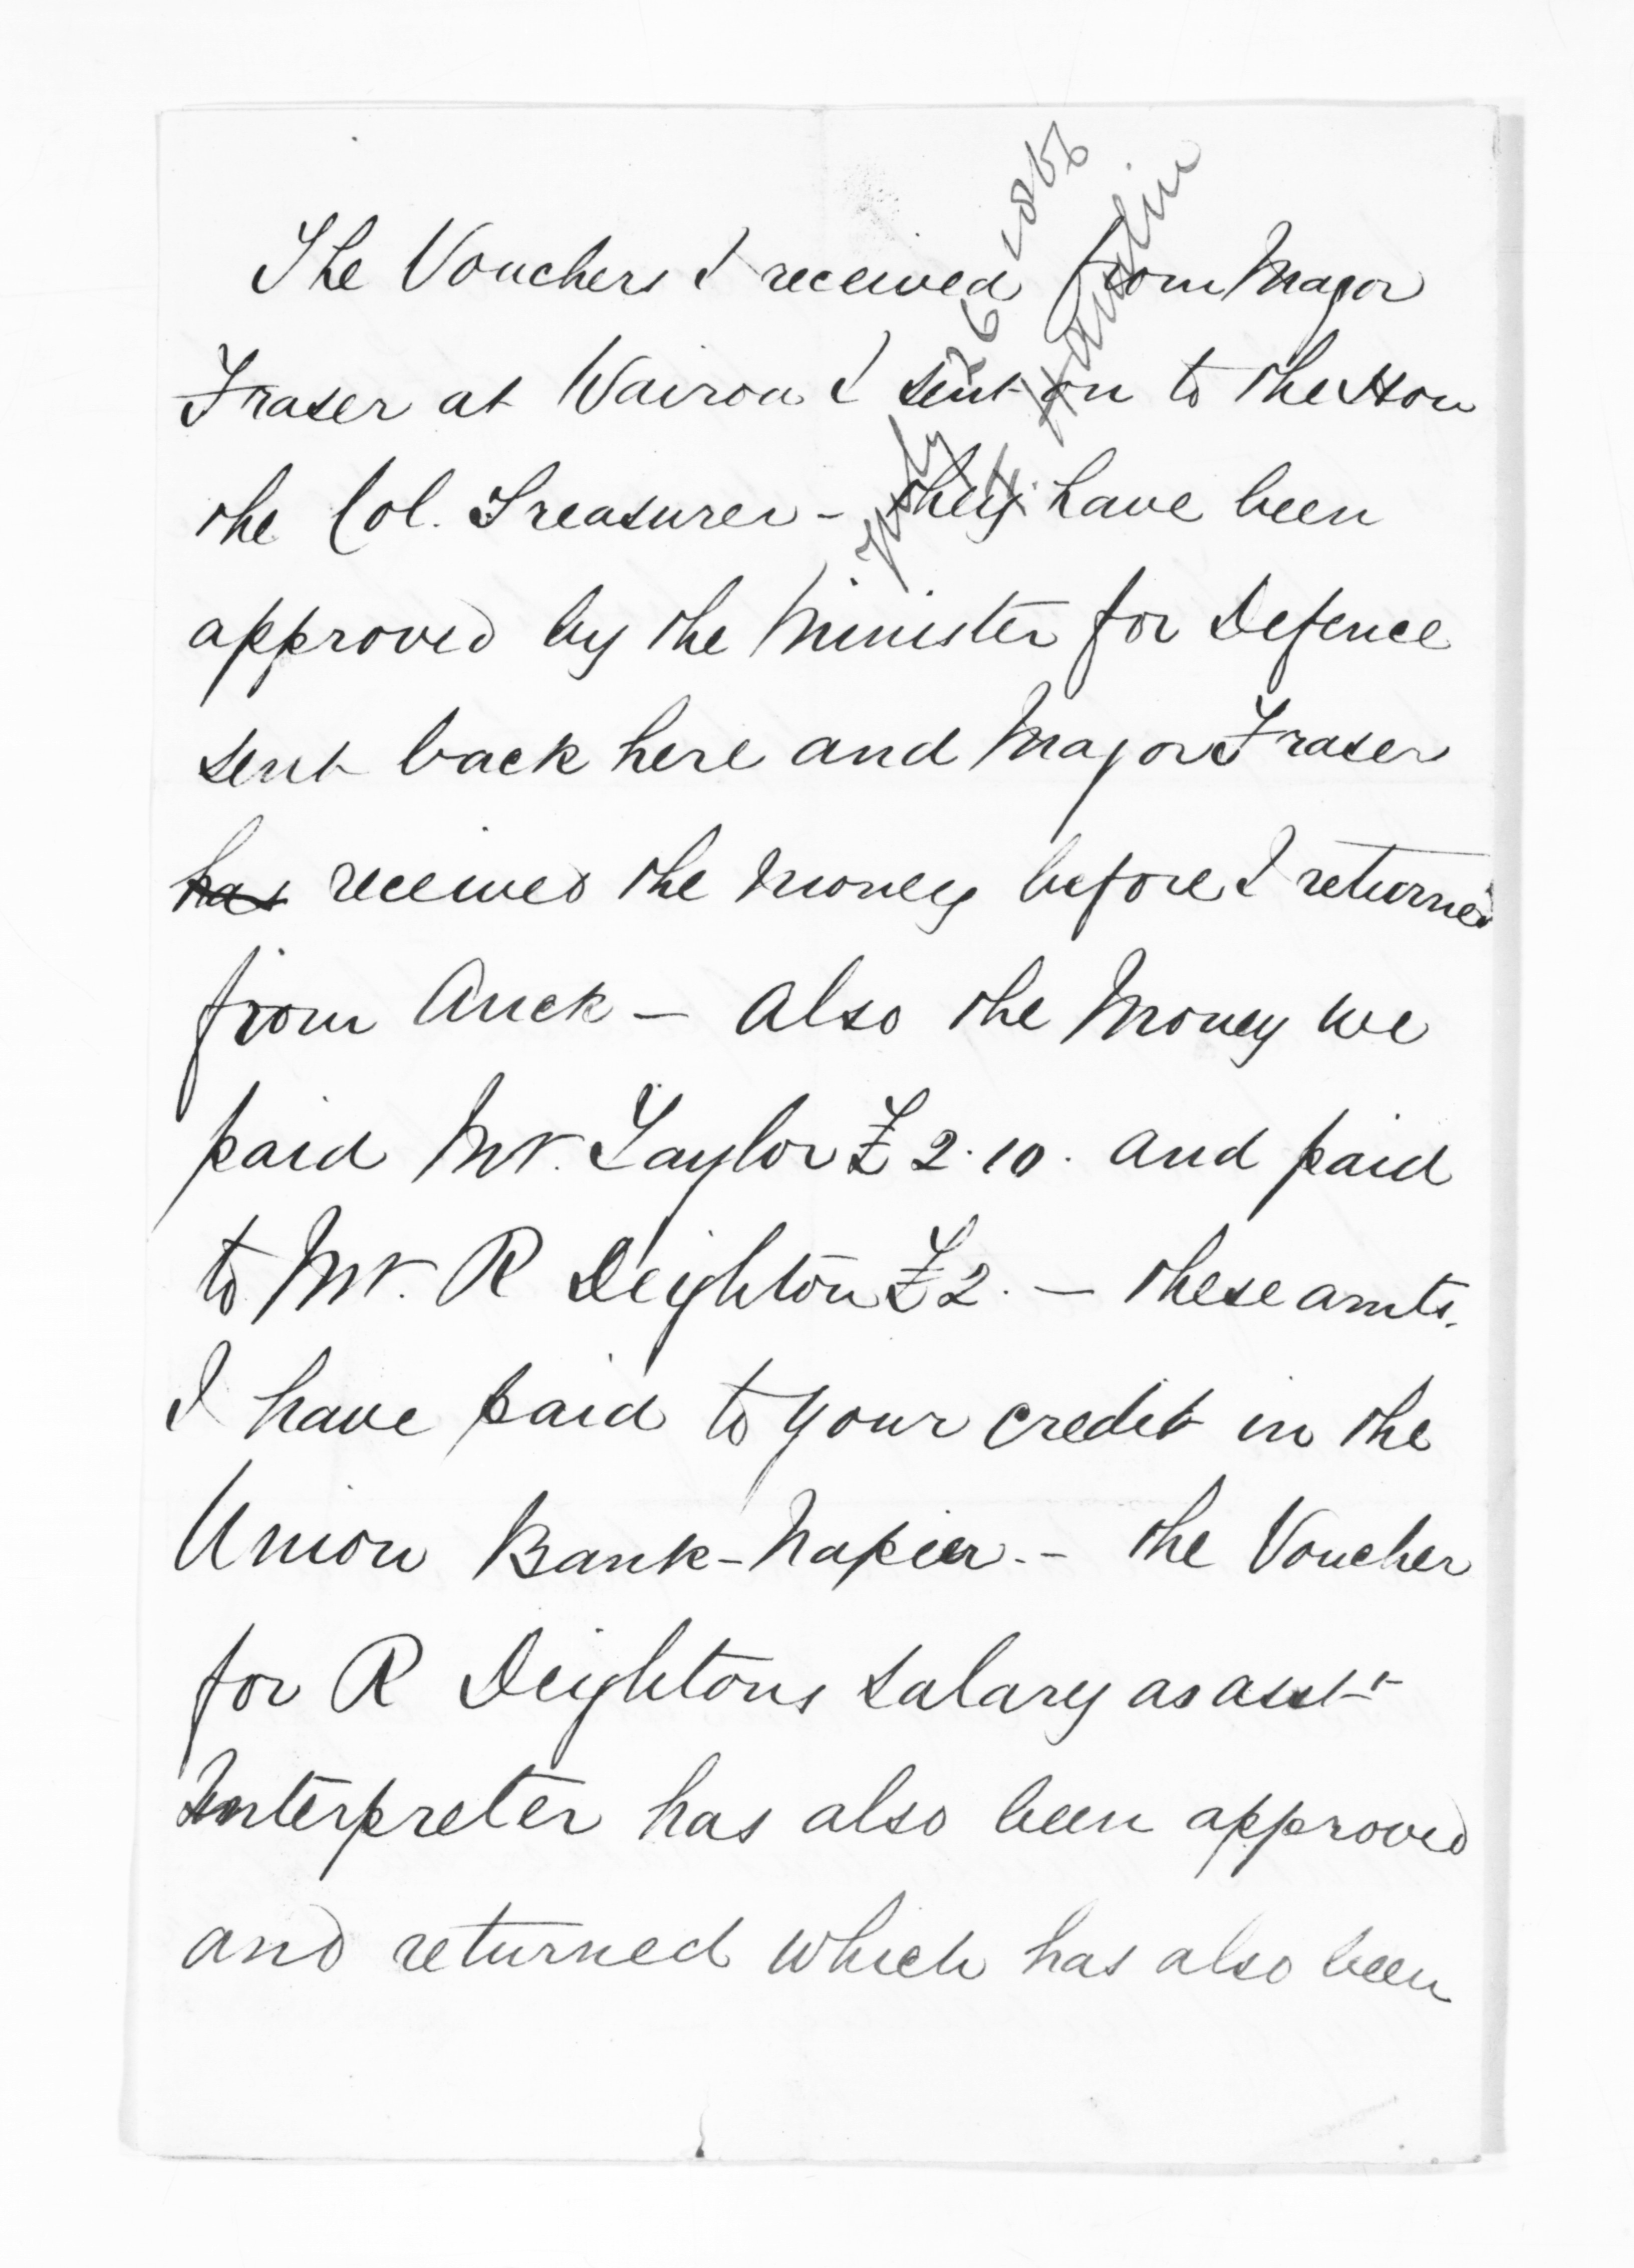 July 26 1866
F. E. Hamlin
The Vouchers I received from Major
Fraser at Wairoa I sent on to the Hon
the Col. Treasurer - they have been
approved by the Minister for Defence
sent back here and Major Fraser
has received the money before I returned
from Auck - also the money we
paid Mr. Taylor £2.10. and paid
to Mr. R Deighton £2. - these amts.
I have paid to your credit in the
Union Bank - Napier. - the Voucher
for R Deightons salary as asst
Interpreter has also been approved
and returned which has also been